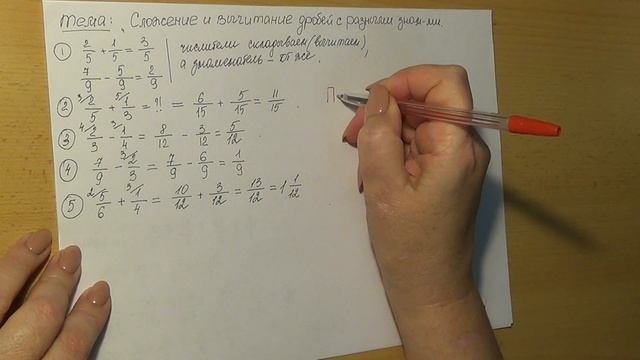 Тема: Сложение и вычитание дробей с разными знам-ми.
① 2/5 + 1/5 = 3/5 | числители складываем (вычитаем),
7/9 - 5/9 = 2/9 | а знаменатель - тот же.
② ³⁄2/5 + ⁵⁄1/3 = ?! = 6/15 + 5/15 = 11/15. П
③ ⁴⁄2/3 - ³⁄1/4 = 8/12 - 3/12 = 5/12.
④ 7/9 - ³⁄2/3 = 7/9 - 6/9 = 1/9
⑤ ²⁄5/6 + ³⁄1/4 = 10/12 + 3/12 = 13/12 = 1 1/12